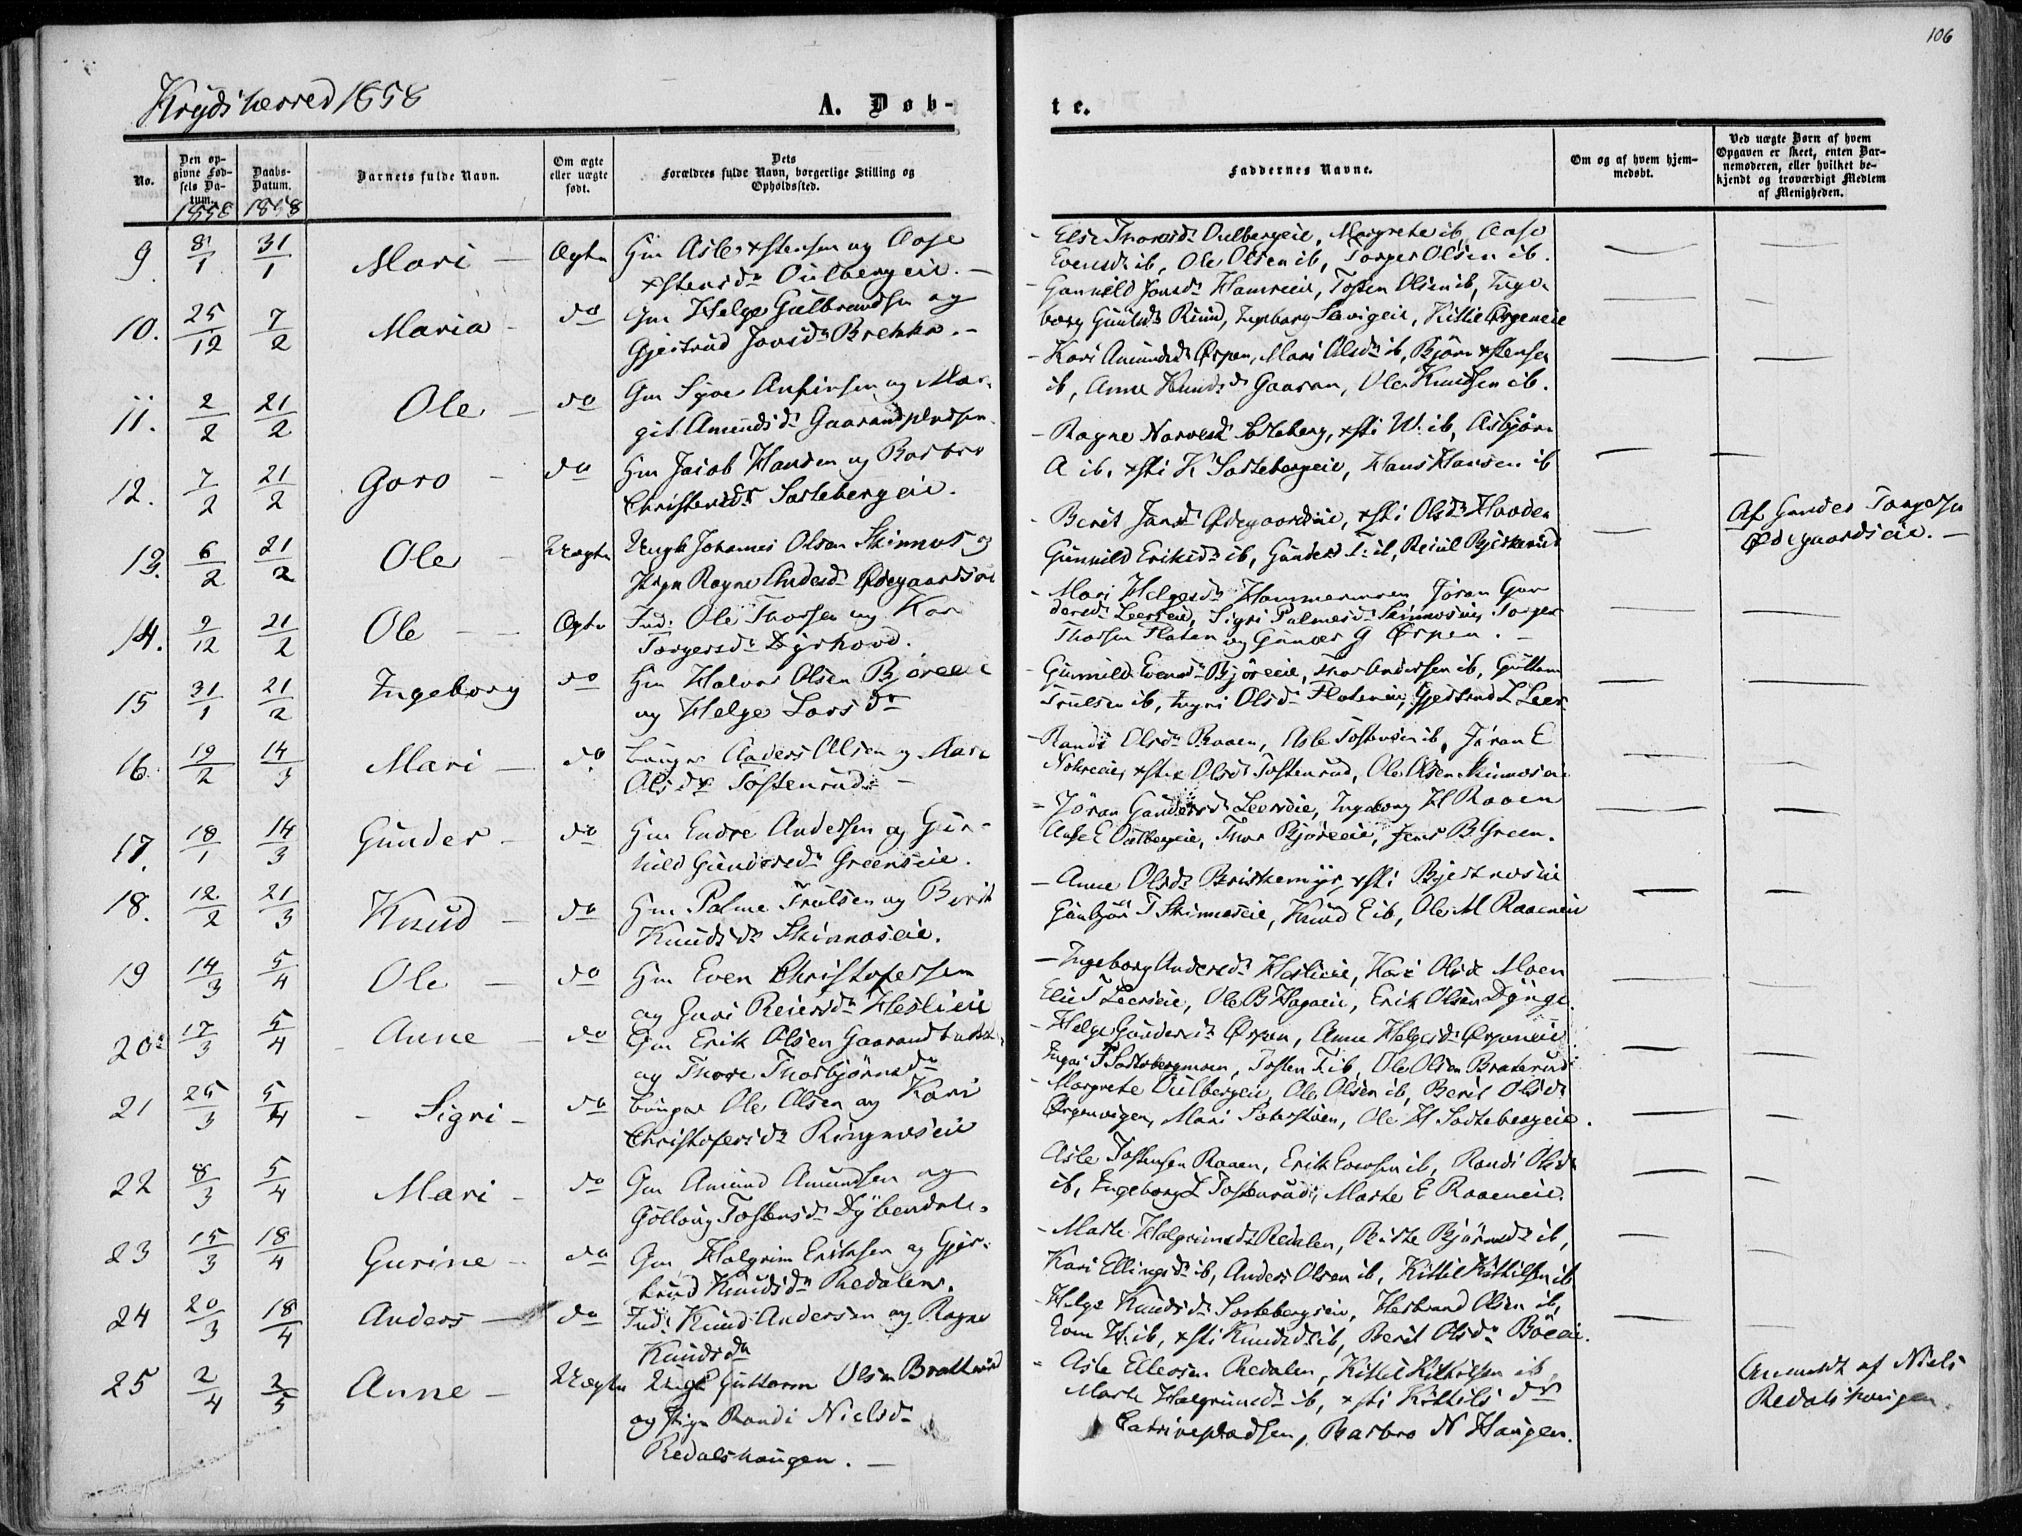 106
Krydsherred 1858
A. Døb-
te.
No.
Den op-
givne Fød-
sels Da-
tum.
1858
Daabs-
Datum.
1858
Barnets fulde Navn.
Om ægte
eller uægte
født.
Dets
Forældres fulde Navn, borgerlige Stilling og
Opholdssted.
Faddernes Navne.
Om og af hvem hjem-
medøbt.
Ved uægte Børn af hvem
Opgaven er skeet, enten Bar-
nemoderen, eller hvilket be-
kjendt og troværdigt Medlem
af Menigheden.
9 8/1 31/1 Mari – Ægte Gm Asle xstensen og Aase
xstensdr Oulbergeie. –
– Else Thoresdr Oulbergeie, Margrete ib, Aase
Evensdr ib, Ole Olsen ib, Torger Olsen ib.
10. 25/12 7/2 Maria – do Gm Helge Gulbrandsen og
Gjertrud Jonsdr Brekke. –
– Gunnild Jonsdr Hamreeie, Tosten Olsen ib, Inge-
borg Ruud, Ingeborg Kittil
11. 2/2 21/2 Ole – do Gm Syver Anfinsen og Mar-
git Amundsdr Gaarandpladsen.
– Kari Amundsdr Ørpen, Mari Olsdr ib, Bjørn xstensen
ib, Anne Knudsdr Gaaran, Ole Knudsen ib.
12. 7/2 21/2 Goro – do Gm Jacob Hansen og Barbro
Christensdr Sortebergeie.
– Ragne xsti W. ib, Asbjørn
A ib, xsti K Sortebergeie, Hans Hansen ib
13. 6/2 21/2 Ole – Uægte Ungk Johannes Olsen Skinnes og
Pige Ragne Andersdr Ødegaardseie
– Berit Jansdr Ødegaardseie, xsti Olsdr Haaden
Gunnild Eriksdr ib, Gunder T. ib,
Af Gunder Torgersen
Ødegaardseie. –
14. 2/12 21/2 Ole – – Ægte Ind: Ole Thorsen og Kari
Torgersdr Dyrhovd.
– Mari Helgesdr Hammermoen Jøran Gun-
dersdr Leerseie, Sigri Palmesdr Skinneseie, Torger
Thorsen Flaten og Gunder G Ørpen. –
15 31/1 21/2 Ingeborg do Gm Halvor Olsen Bjøreeie
og Helge Larsdr
– Gunnild Evensdr Bjøreeie, Thor Andersen ib, Guttorm
Truelsen ib, Ingri Olsdr Flateneie, Gjertrud L Leer-
16. 19/2 14/3 Mari – do Lougm Anders Olsen og Kari
Olsdr Tostensrud. –
– Randi Olsdr Raaen, Asle Tostensen ib, Jøran E
Olsdr Tostenrud, Ole Olsen Skinneseie
17. 18/1 14/3 Gunder – do Gm Endre Andersen og Gun-
hild Gundersdr Greenseie.
– Jøran Gundersdr Leerseie, Ingeborg H Raaen
Aase E Oulbergeie, Thor Bjøreeie, Jens B Green.
18. 12/2 21/3 Knud – do Gm Palme Truelsen og Berit
Knudsdr Skinneseie.
– Anne Olsdr Briskemyr, xsti
Gunbjør T Skinneseie, Knud E ib, Ole M Raaeneie
19 14/3 5/4 Ole – do Gm Even Christofersen
og Guri Reiersdr Heslieie
– Ingeborg Andersdr Heslieie, Kari Olsdr Moen
Elie T Leerseie, Ole B Hagaeie, Erik Olsen Dynge.
20. 17/3 5/4 – Anne – do Gm Erik Olsen Gaarand
og Thore Thorbjørnsdr
– Helge Gundersdr Ørpen, Anne Helgesdr Ørpeneie.
Ingri T Sortebergmoen, Tosten T ib, Ole Olsen Braaterud
21 25/3 5/4 – Sigri – do Lougm Ole Olsen og Kari
Christofersdr Ringneseie
– Margrete Oulbergeie, Ole Olsen ib, Berit Olsdr
Ørgenvigen, Mari Ole H Sortebergeie.
22 8/3 5/4 Mari – do Gm Amund Amundsen og
Gollaug Tostensdr Dybendal.
Asle Tostensen Raaen, Erik Evensen ib, Randi Olsdr
ib, Ingeborg L Tostensrud, Marte E Raaeneie.
23 15/3 18/4 Gurine – do Gm Halgrim Eriksen og Gjer-
trud Knudsdr Redalen.
– Marte Halgrimsdr Redalen, Birte Bjørnsdr ib,
Kari Ellingsdr ib, Anders Olsen ib, Kittil Kittilsen ib
24 20/3 18/4 Anders – do Ind: Knud Andersen og Ragne
Knudsdr
– Helge Knudsdr Sortebergseie, Herbrand Olsen ib,
Even H. ib, xsti Knudsdr ib, Berit Olsdr Böeeie.
25 2/4 2/5 Anne – Uægte Ungk Guttorm Olsen Bratterud
og Pige Randi Nielsdr
Redalshaugen. –
– Asle Ellevsen Redalen, Kittil Kittilsen ib,
Marte Halgrimsdr ib, xsti Kittilsdr
Catrinepladsen, Barbro N Haugen.
Anmeldt af Niels
Redalshaugen.